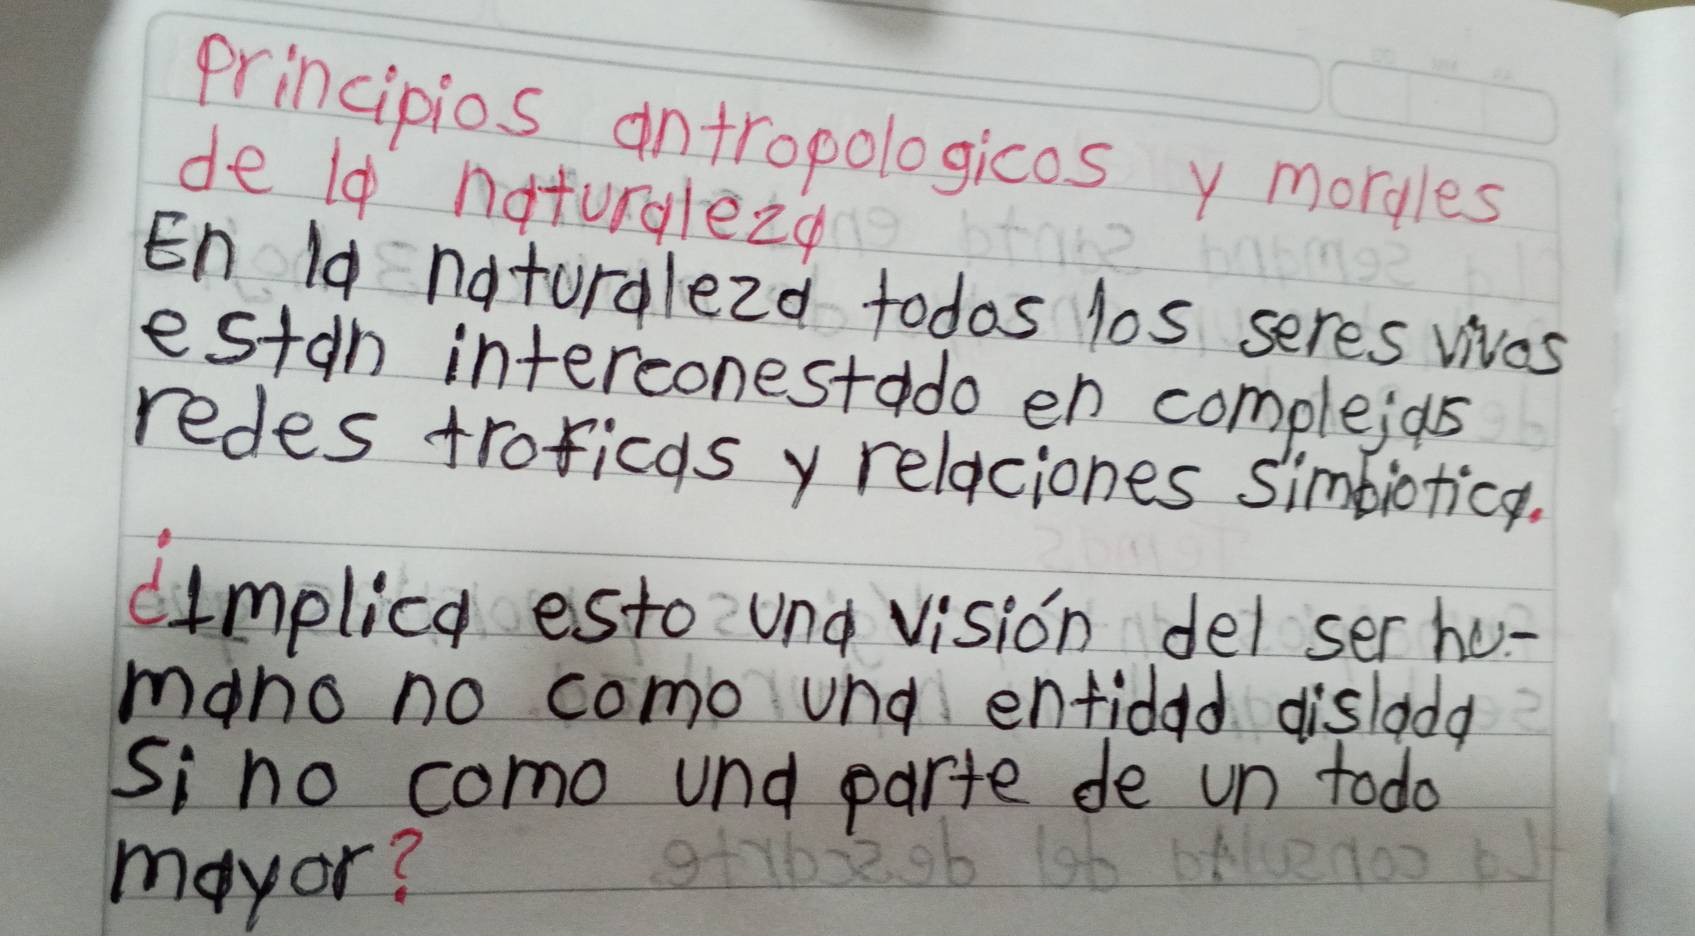 Principios antropologicos y morales
de la naturaleza
En la naturaleza todos los seres vivos
estan interconestado en complejas
redes troficas y relaciones simbiotica.
¿Implica esto una visión del ser hu-
mano no como una entidad aislada
Si no como una parte de un todo
mayor?